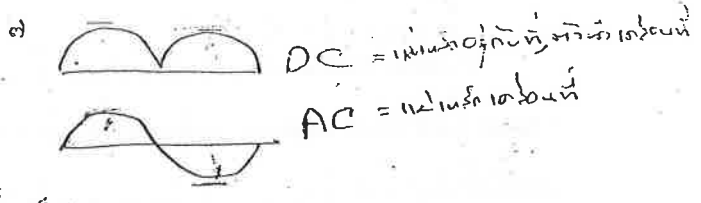 ๗
DC = แม่เหล็กอยู่กับที่, ตัวนำเคลื่อนที่
AC = แม่เหล็กเคลื่อนที่